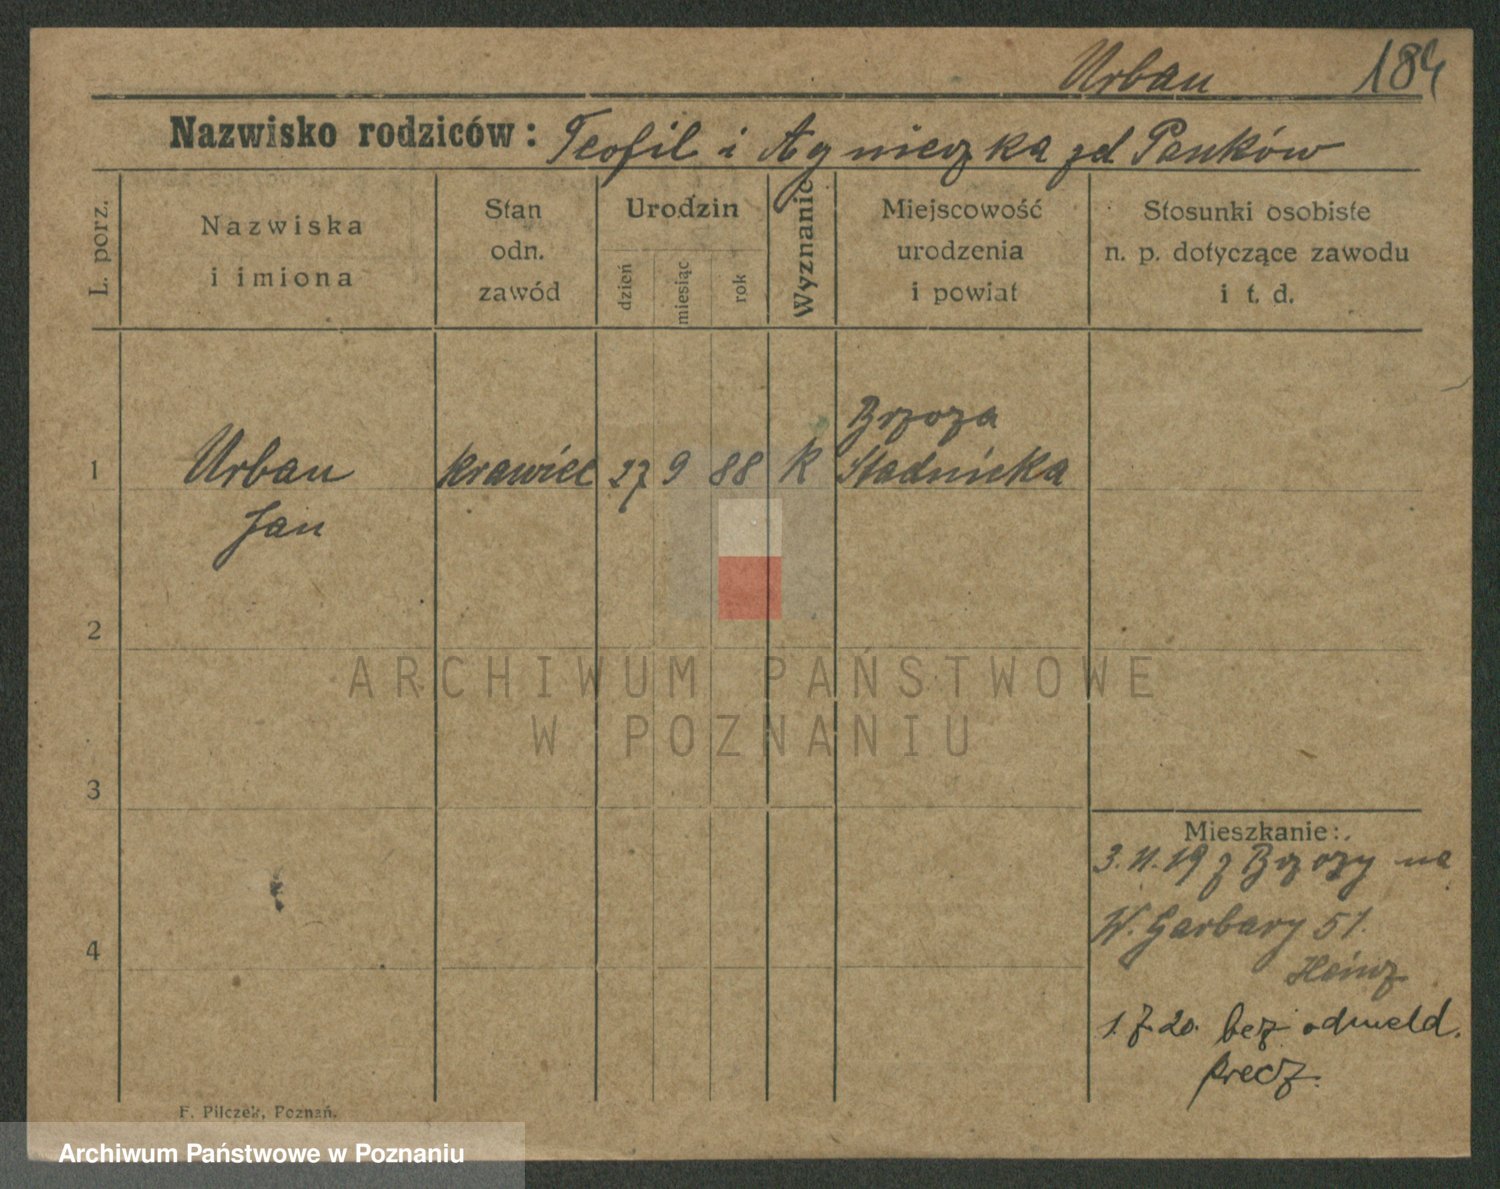 Urban 184
Nazwisko rodziców: Teofil i Agnieszka zd Panków
L. porz.
Nazwiska
i imiona
Stan
odn.
zawód
Urodzin
dzień
miesiąc
rok
Wyznanie
Miejscowość
urodzenia
i powiat
Stosunki osobiste
n. p. dotyczące zawodu
i t. d.
Brzoza
1 Urban krawiec 27 9 88 k Stadnicka
Jan
2
ARCHIWUM PAŃSTWOWE
W POZNANIU
3
Mieszkanie:
3.11.19 z Brzozy na
W. Garbary 51.
4
Heinz
1.7.20. bez odmeld.
precz.
F. Pilczek, Poznań.
Archiwum Państwowe w Poznaniu